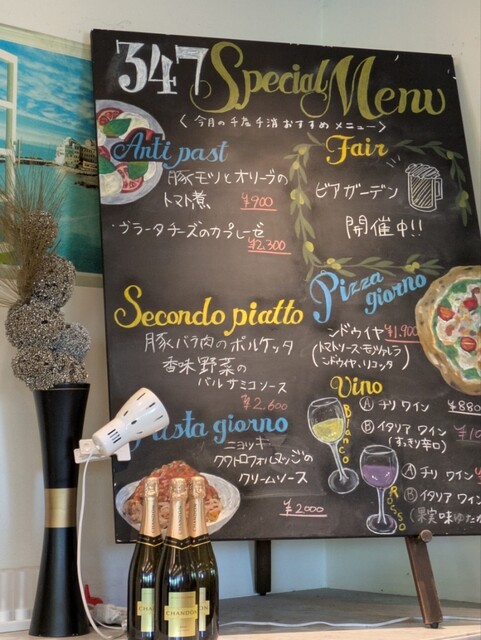 347 Special Menu
〈 今月の千産千消おすすめ メニュー〉
Anti past
豚モツとオリーヴの
トマト煮
¥900
・ヴラータチーズのカプレーゼ
¥2,300
Fair
ビアガーデン
開催中!!
Secondo piatto
豚バラ肉のポルケッタ
香味野菜の
バルサミコソース
¥2,600
Pizza
giorno
ンドゥイヤ ¥1,900
(トマトソース・モッツァレラ
ンドゥイヤ、リコッタ)
Pasta giorno
ニョッキ
クワトロフォルマッジの
クリームソース
¥2000
Vino
Bianco
Ⓐ チリ ワイン ¥880
Ⓑ イタリア ワイン
(すっきり辛口)
Rosso
Ⓐ チリ ワイン
Ⓑ イタリア ワイン
CHANDON